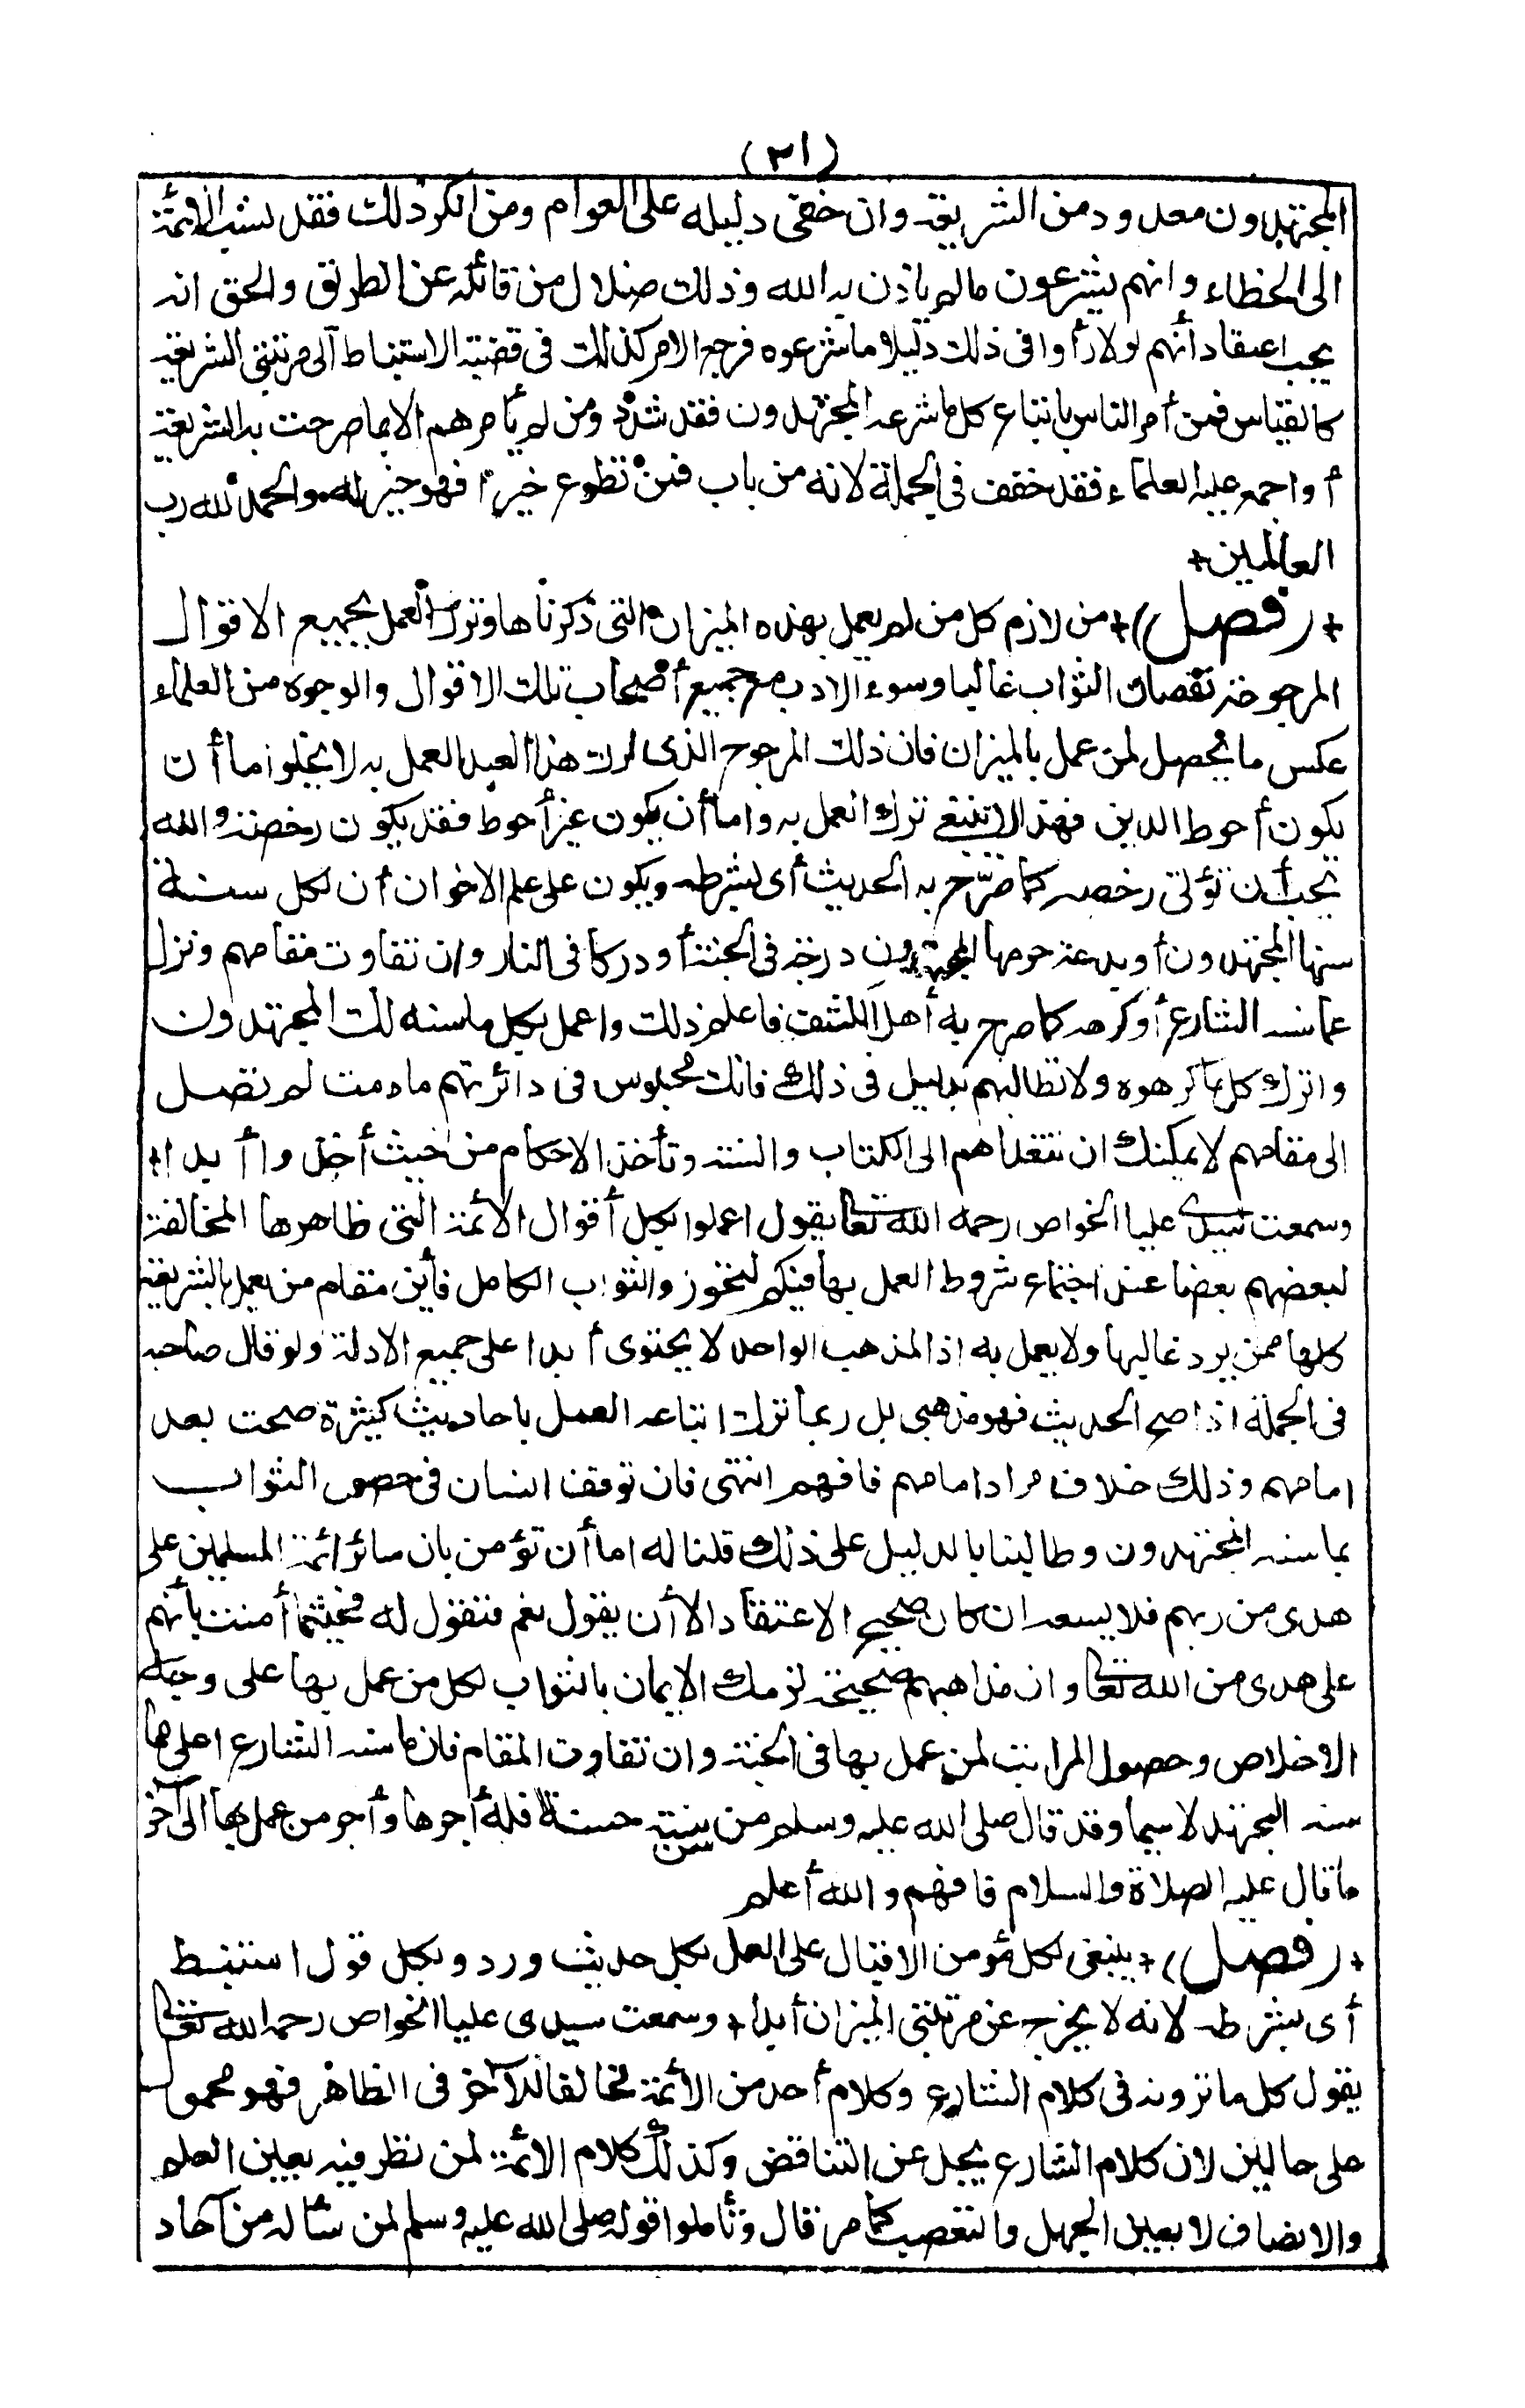 (٢١)
المجتهدون معدود من الشريعة وان خفى دليله على العوام ومن انكر ذلك فقد نسب الائمة
الى الخطاء وانهم يشرعون مالم ياذن به الله وذلك ضلال من قائله عن الطريق والحق انه
يجب اعتقاد أنهم لولا رأوا فى ذلك دليلا ما شرعوه فرجع الامر كذلك فى قضية الاستنباط الى مرتبتى الشريعة
كالقياس فمن أمر الناس باتباع كل ما شرعه المجتهدون فقد شدد ومن لم يأمرهم الا بما صرحت به الشريعة
أو اجمع عليه العلماء فقد خفف فى الجملة لانه من باب فمن تطوع خيرا فهو خير له والحمد لله رب
العالمين+
+(فصل)+ من لازم كل من لم يعمل بهذه الميزان التى ذكرناها وترك العمل بجميع الاقوال
المرجوحة نقصان الثواب غالبا وسوء الادب مع جميع أصحاب تلك الاقوال والوجوه من العلماء
عكس ما يحصل لمن عمل بالميزان فان ذلك المرجوح الذى ترك هذا العبد العمل به لا يخلوا ما أن
يكون أحوط للدين فهذا لا ينبغى ترك العمل به واما أن يكون غير أحوط فقد يكون رخصة والله
يحب أن تؤتى رخصه كما صرّح به الحديث أى بشرطه ويكون على علم الاخوان أن لكل سنة
سنها المجتهدون أو بدعة حرمها المجتهدون درجة فى الجنة أو دركا فى النار وان تفاوت مقامهم ونزل
عما سنه الشارع أو كرهه كما صرح به أهل الكشف فاعلم ذلك واعمل بكل ما سنه لك المجتهدون
واترك كل ما كرهوه ولا تطالبهم بدليل فى ذلك فانك محبوس فى دائرتهم ما دمت لم تصل
الى مقامهم لا يمكنك ان تتعداهم الى الكتاب والسنة وتأخذ الاحكام من حيث أخذوا أبدا+
وسمعت سيدى عليا الخواص رحمه الله تعالى يقول اعملوا بكل أقوال الأئمة التى ظاهرها المخالفة
لبعضهم بعضا عند اجتماع شروط العمل بها فيكم لتحوزوا الثواب الكامل فأين مقام من يعمل بالشريعة
كلها ممن يرد غالبها ولا يعمل به اذ المذهب الواحد لا يحتوى أبدا على جميع الادلة ولو قال صاحبه
فى الجملة اذا صح الحديث فهو مذهبى بل ربما ترك اتباعه العمل باحاديث كثيرة صحت بعد
امامهم وذلك خلاف مراد امامهم فافهم انتهى فان توقف انسان فى حصول الثواب
بما سنه المجتهدون وطالبنا بالدليل على ذلك قلنا له اما أن تؤمن بان سائر ائمة المسلمين على
هدى من ربهم فلا يسعه ان كان صحيح الاعتقاد الا أن يقول نعم فنقول له فحيثما أمنت بأنهم
على هدى من الله تعالى وان مذاهبهم صحيحة لزمك الايمان بالثواب لكل من عمل بها على وجه
الاخلاص وحصول المراتب لمن عمل بها فى الجنة وان تفاوت المقام فان ما سنه الشارع اعلى مما
سنه المجتهد لا سيما وقد قال صلى الله عليه وسلم من سن سنة حسنة فله أجرها وأجر من عمل بها الى آخر
ما قال عليه الصلاة والسلام فافهم والله أعلم
+(فصل)+ ينبغى لكل مؤمن الاقبال على العمل بكل حديث ورد وبكل قول استنبط
أى بشرطه لانه لا يخرج عن مرتبتى الميزان أبدا+ وسمعت سيدى عليا الخواص رحمه الله تعالى
يقول كل ما ترونه فى كلام الشارع وكلام أحد من الأئمة مخالفا للآخر فى الظاهر فهو محمول
على حالين لان كلام الشارع يجل عن التناقض وكذلك كلام الائمة لمن نظر فيه بعين العلم
والانصاف لا بعين الجهل والتعصب كما مر قال وتأملوا قوله صلى الله عليه وسلم لمن سأله من آحاد